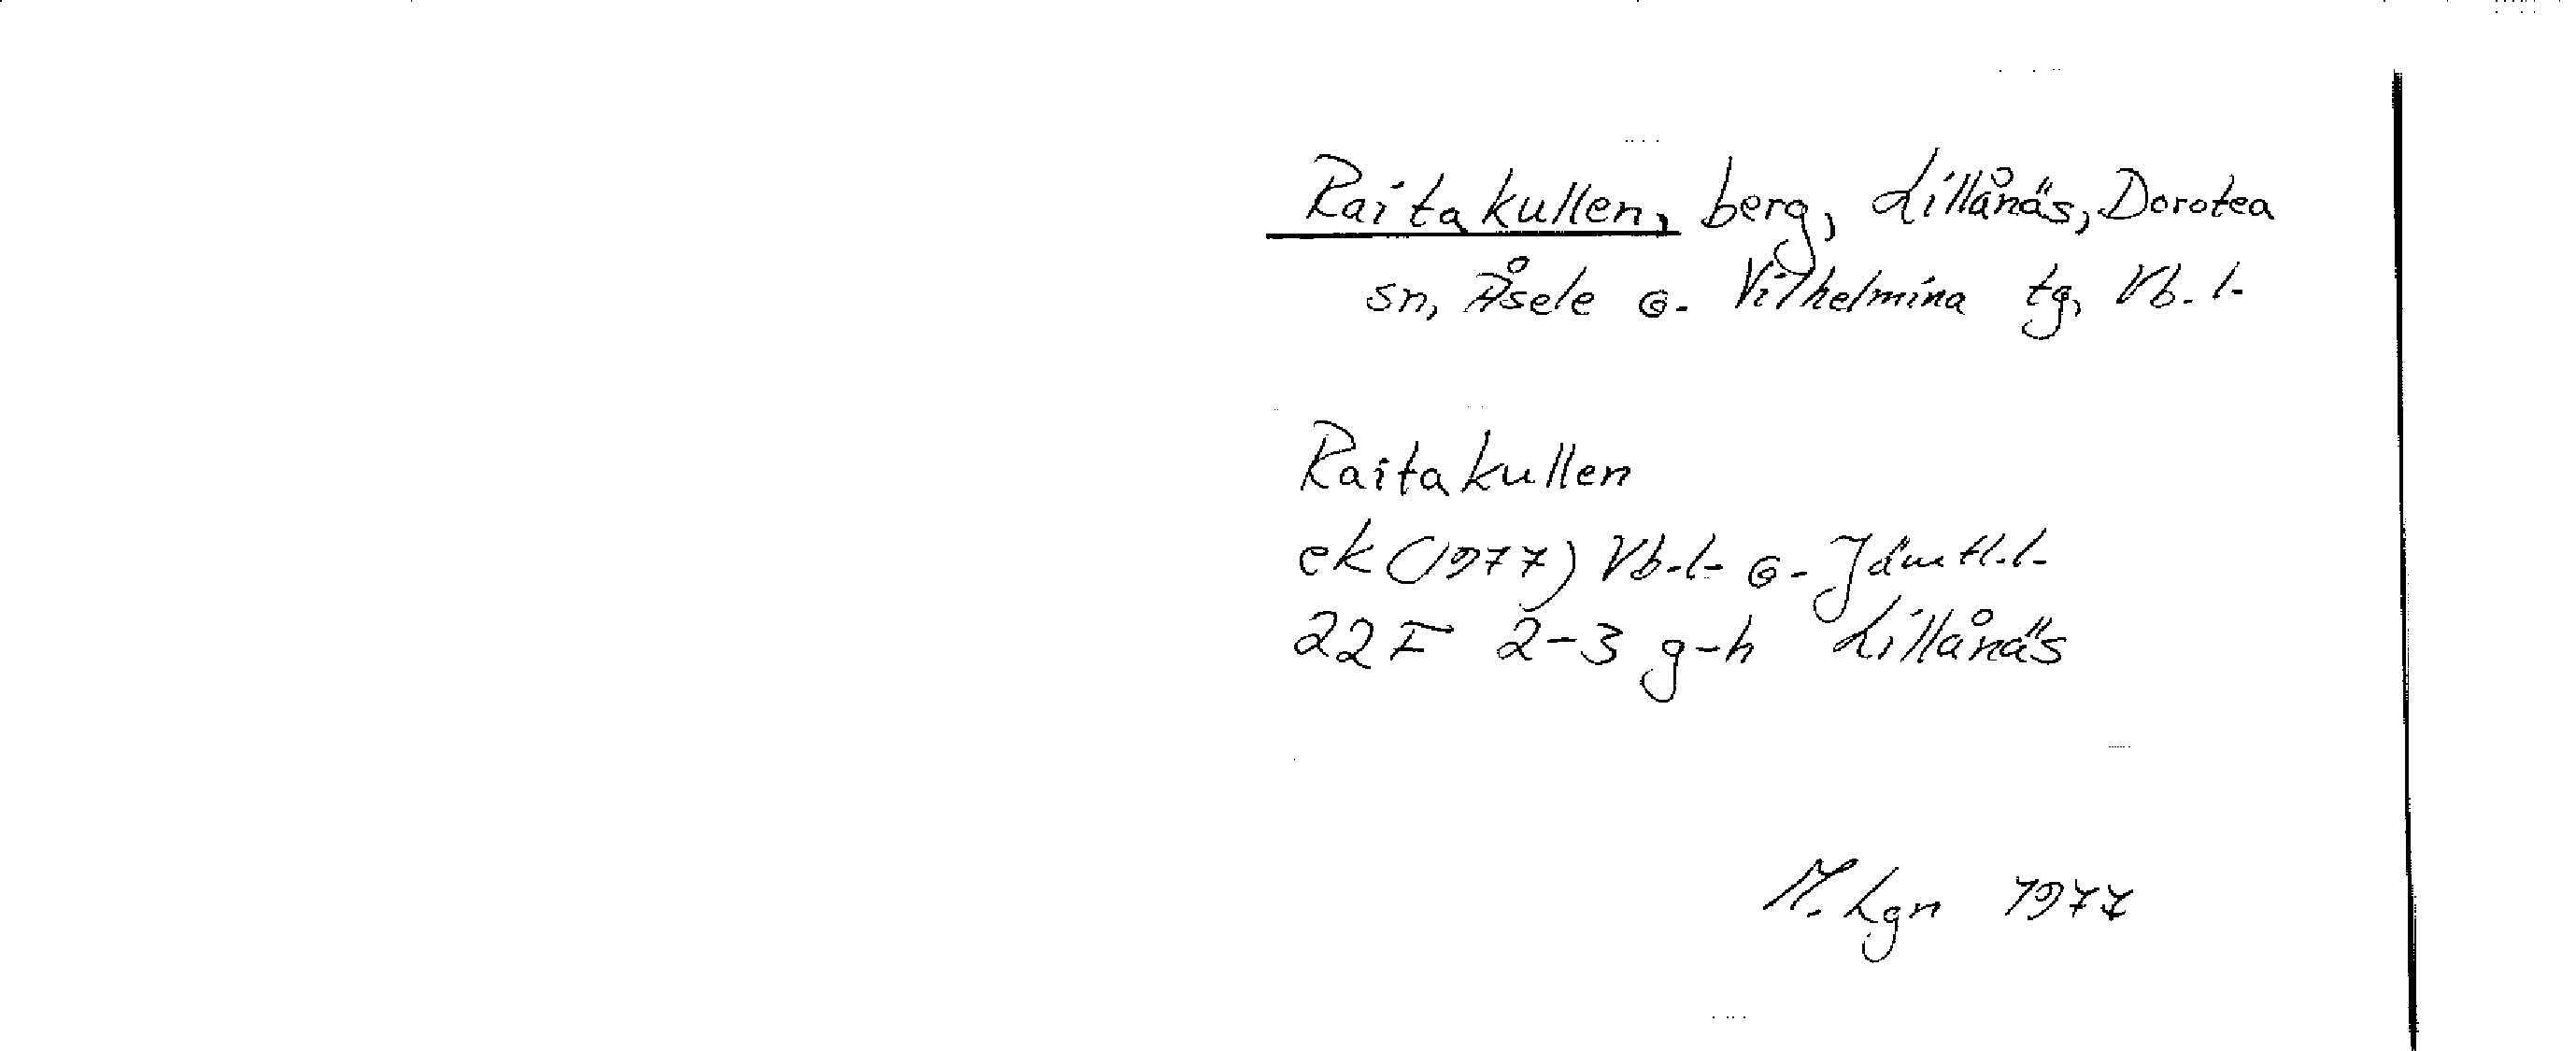 Raitakullen, berg, Lillånäs, Dorotea
sn, Åsele o. Vilhelmina tg, Vb. l.
Raitakullen
ek (1977) Vb. l. o. Jämtl. l.
22 F 2-3 g-h Lillånäs
M. Lgn 1977